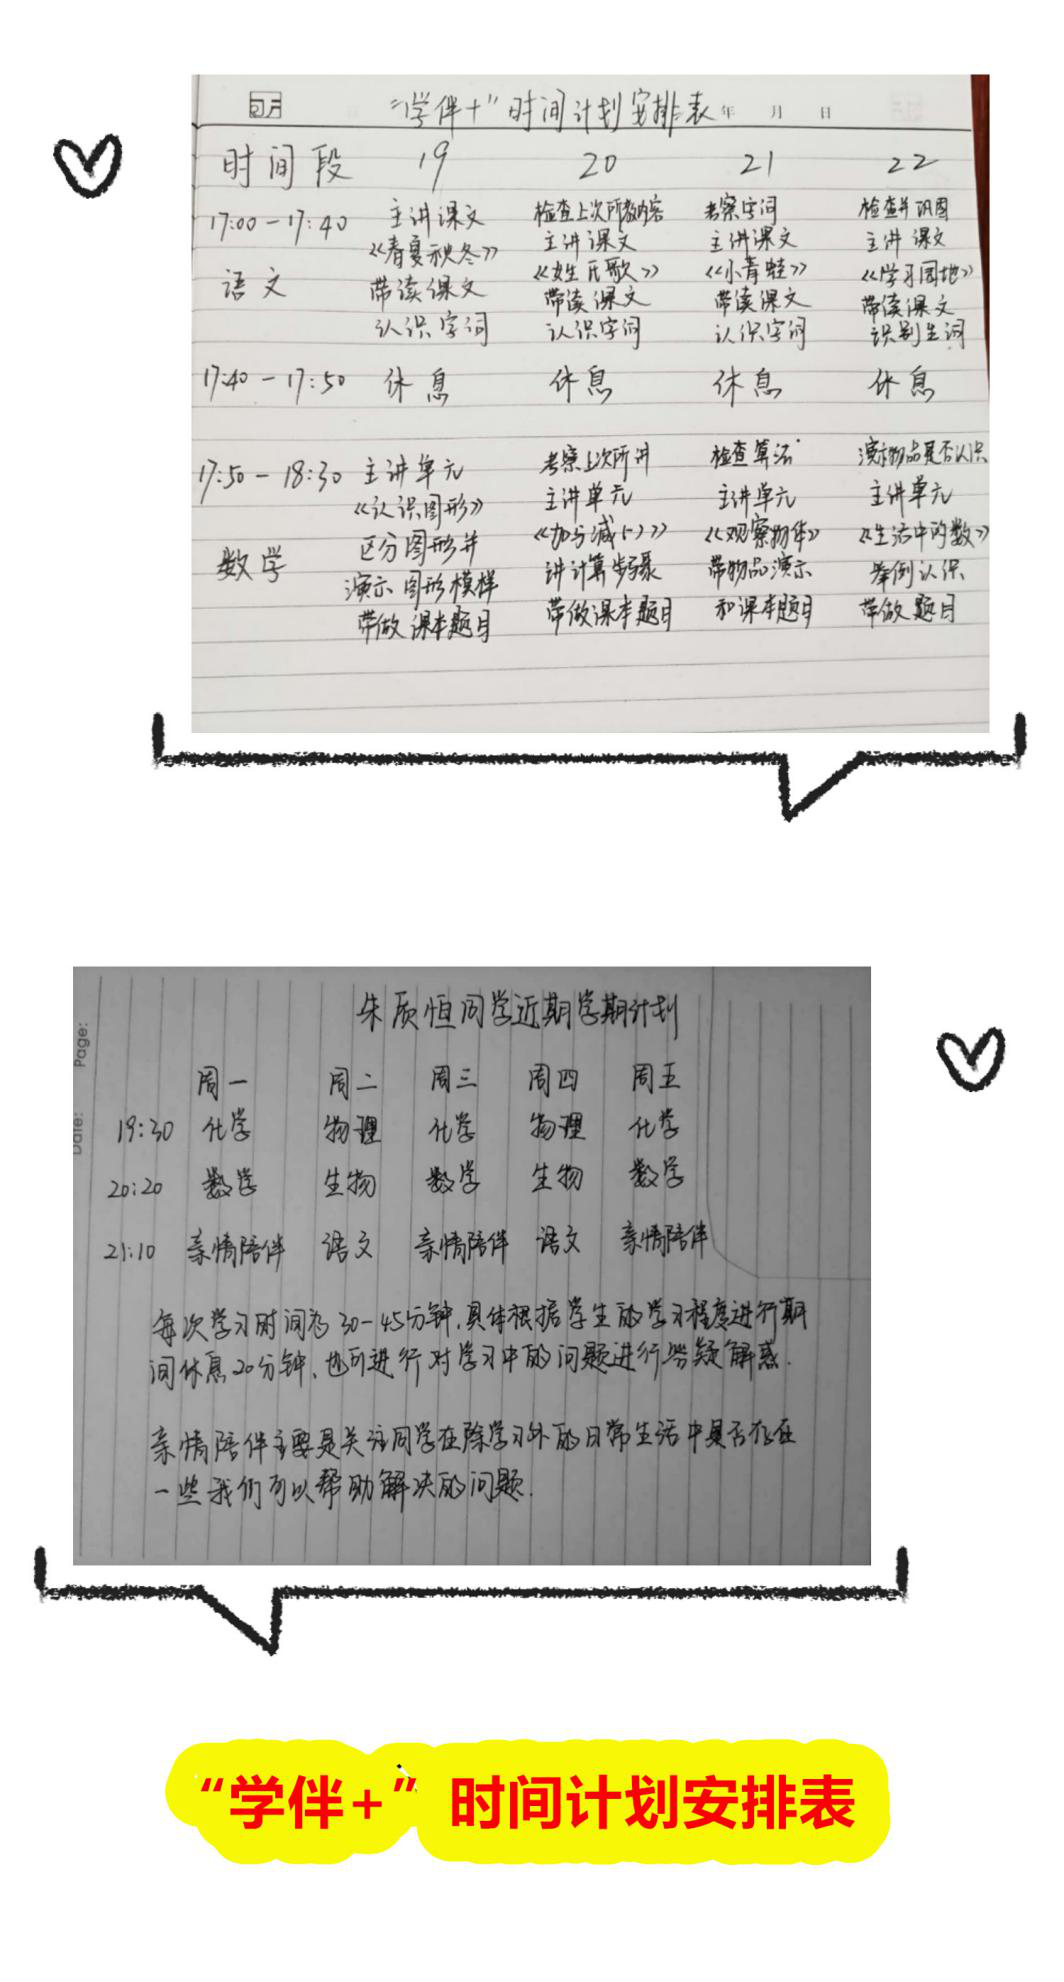 “学伴+”时间计划安排表 年 月 日
时间段 19 20 21 22
17:00-17:40 主讲课文 检查上次所教内容 考察字词 检查并巩固
《春夏秋冬》 主讲课文 主讲课文 主讲课文
语文 《姓氏歌》 《小青蛙》 《学习园地》
带读课文 带读课文 带读课文 带读课文
认识字词 认识字词 认识字词 识别生词
17:40-17:50 休息 休息 休息 休息
17:50-18:30 主讲单元 考察上次所讲 检查算法 演示物品是否认识
《认识图形》 主讲单元 主讲单元 主讲单元
区分图形并 《加与减(一)》 《观察物体》 《生活中的数》
数学 演示图形模样 讲计算步骤 带物品演示 举例认识
带做课本题目 带做课本题目 和课本题目 带做题目
Page:
Date:
朱质恒同学近期学期计划
周一 周二 周三 周四 周五
19:30 化学 物理 化学 物理 化学
20:20 数学 生物 数学 生物 数学
21:10 亲情陪伴 语文 亲情陪伴 语文 亲情陪伴
每次学习时间为30-45分钟,具体根据学生的学习程度进行期
间休息20分钟,也可进行对学习中的问题进行答疑解惑.
亲情陪伴主要是关注同学在除学习外的日常生活中是否存在
一些我们可以帮助解决的问题.
“学伴+”时间计划安排表